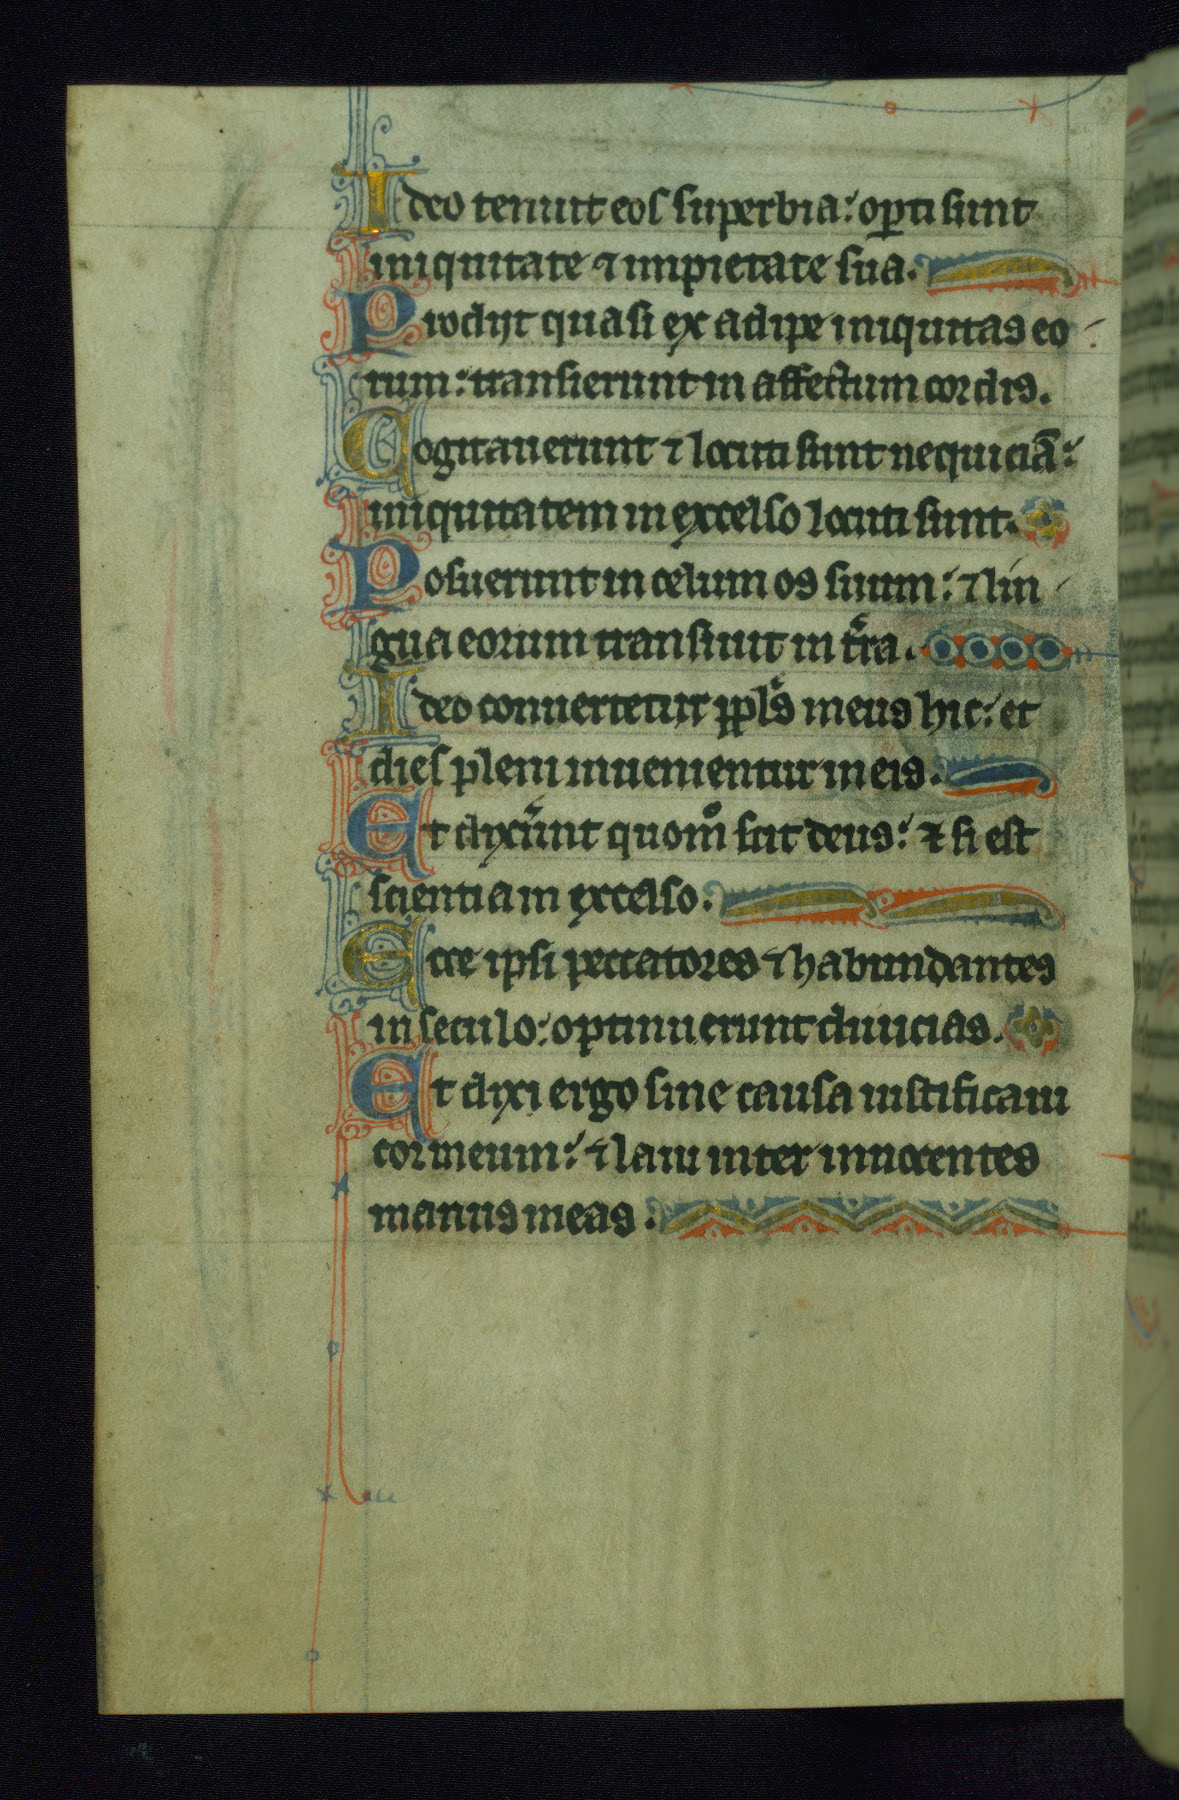 Ideo tenuit eos superbia: op̲ti sunt
iniquitate ⁊ impietate sua.
Prodijt quasi ex adipe iniquitas eo
rum: transierunt in affectum cordis.
Cogitauerunt ⁊ locuti sunt nequiciā:
iniquitatem in excelso locuti sunt.
Posuerunt in celum os suum: ⁊ lin
gua eorum transiuit in t̓ra.
Ideo conuertetur ꝓpl̓s meus hic: et
dies pleni inuenientur in eis.
Et dixer̄nt quom̊ scit deus: ⁊ si est
scientia in excelso.
Ecce ipsi peccatores ⁊ habundantes
in seculo: optinuerunt diuicias.
Et dixi ergo sine causa iustificaui
cor meum: ⁊ laui inter innocentes
manus meas.